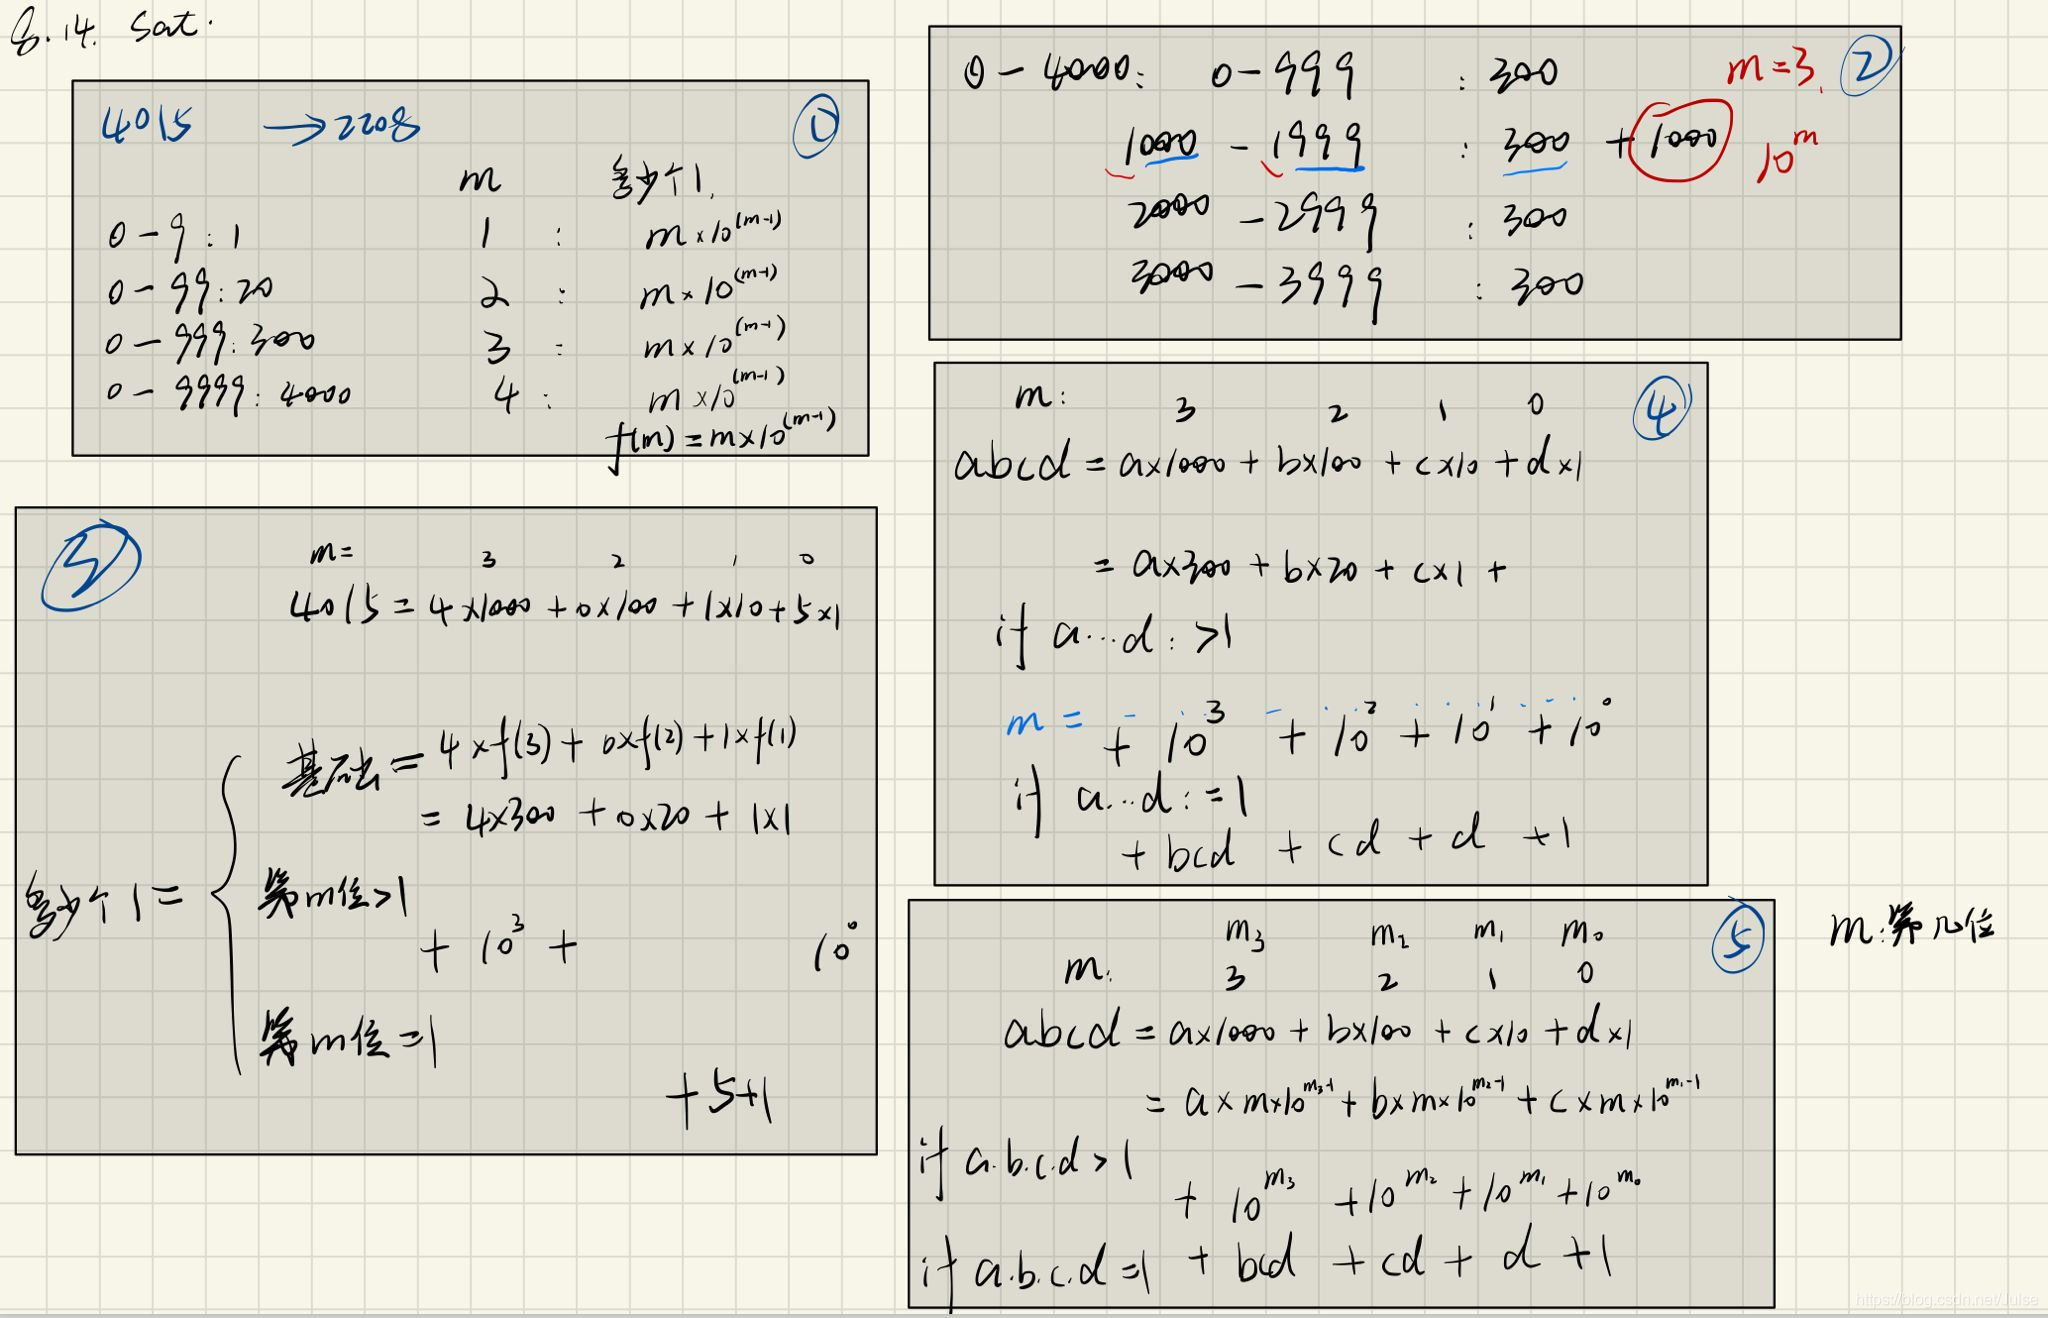 8.14. Sat.
4015 → 2208 ①
m 多少个1.
0-9:1 1 : m×10^(m-1)
0-99:20 2 : m×10^(m-1)
0-999:300 3 : m×10^(m-1)
0-9999:4000 4 : m×10^(m-1)
f(m)=m×10^(m-1)
0-4000: 0-999 : 300 m=3. ②
1000-1999 : 300 +1000 10^m
2000-2999 : 300
3000-3999 : 300
③ m= 3 2 1 0
4015=4×1000+0×100+1×10+5×1
多少个1=
基础=4×f(3)+0×f(2)+1×f(1)
=4×300+0×20+1×1
第m位>1
+10^3+ 10^0
第m位=1
+5+1
m: 3 2 1 0 ④
abcd=a×1000+b×100+c×10+d×1
=a×300+b×20+c×1+
if a...d:>1
m= +10^3 +10^2 +10^1 +10^0
if a...d:=1
+bcd +cd +d +1
m3 m2 m1 m0 ⑤
m: 3 2 1 0
abcd=a×1000+b×100+c×10+d×1
=a×m×10^(m3-1)+b×m×10^(m2-1)+c×m×10^(m1-1)
if a.b.c.d>1
+10^m3 +10^m2 +10^m1 +10^m0
if a.b.c.d=1 +bcd +cd+d +1
m:第几位
https://blog.csdn.net/Julse